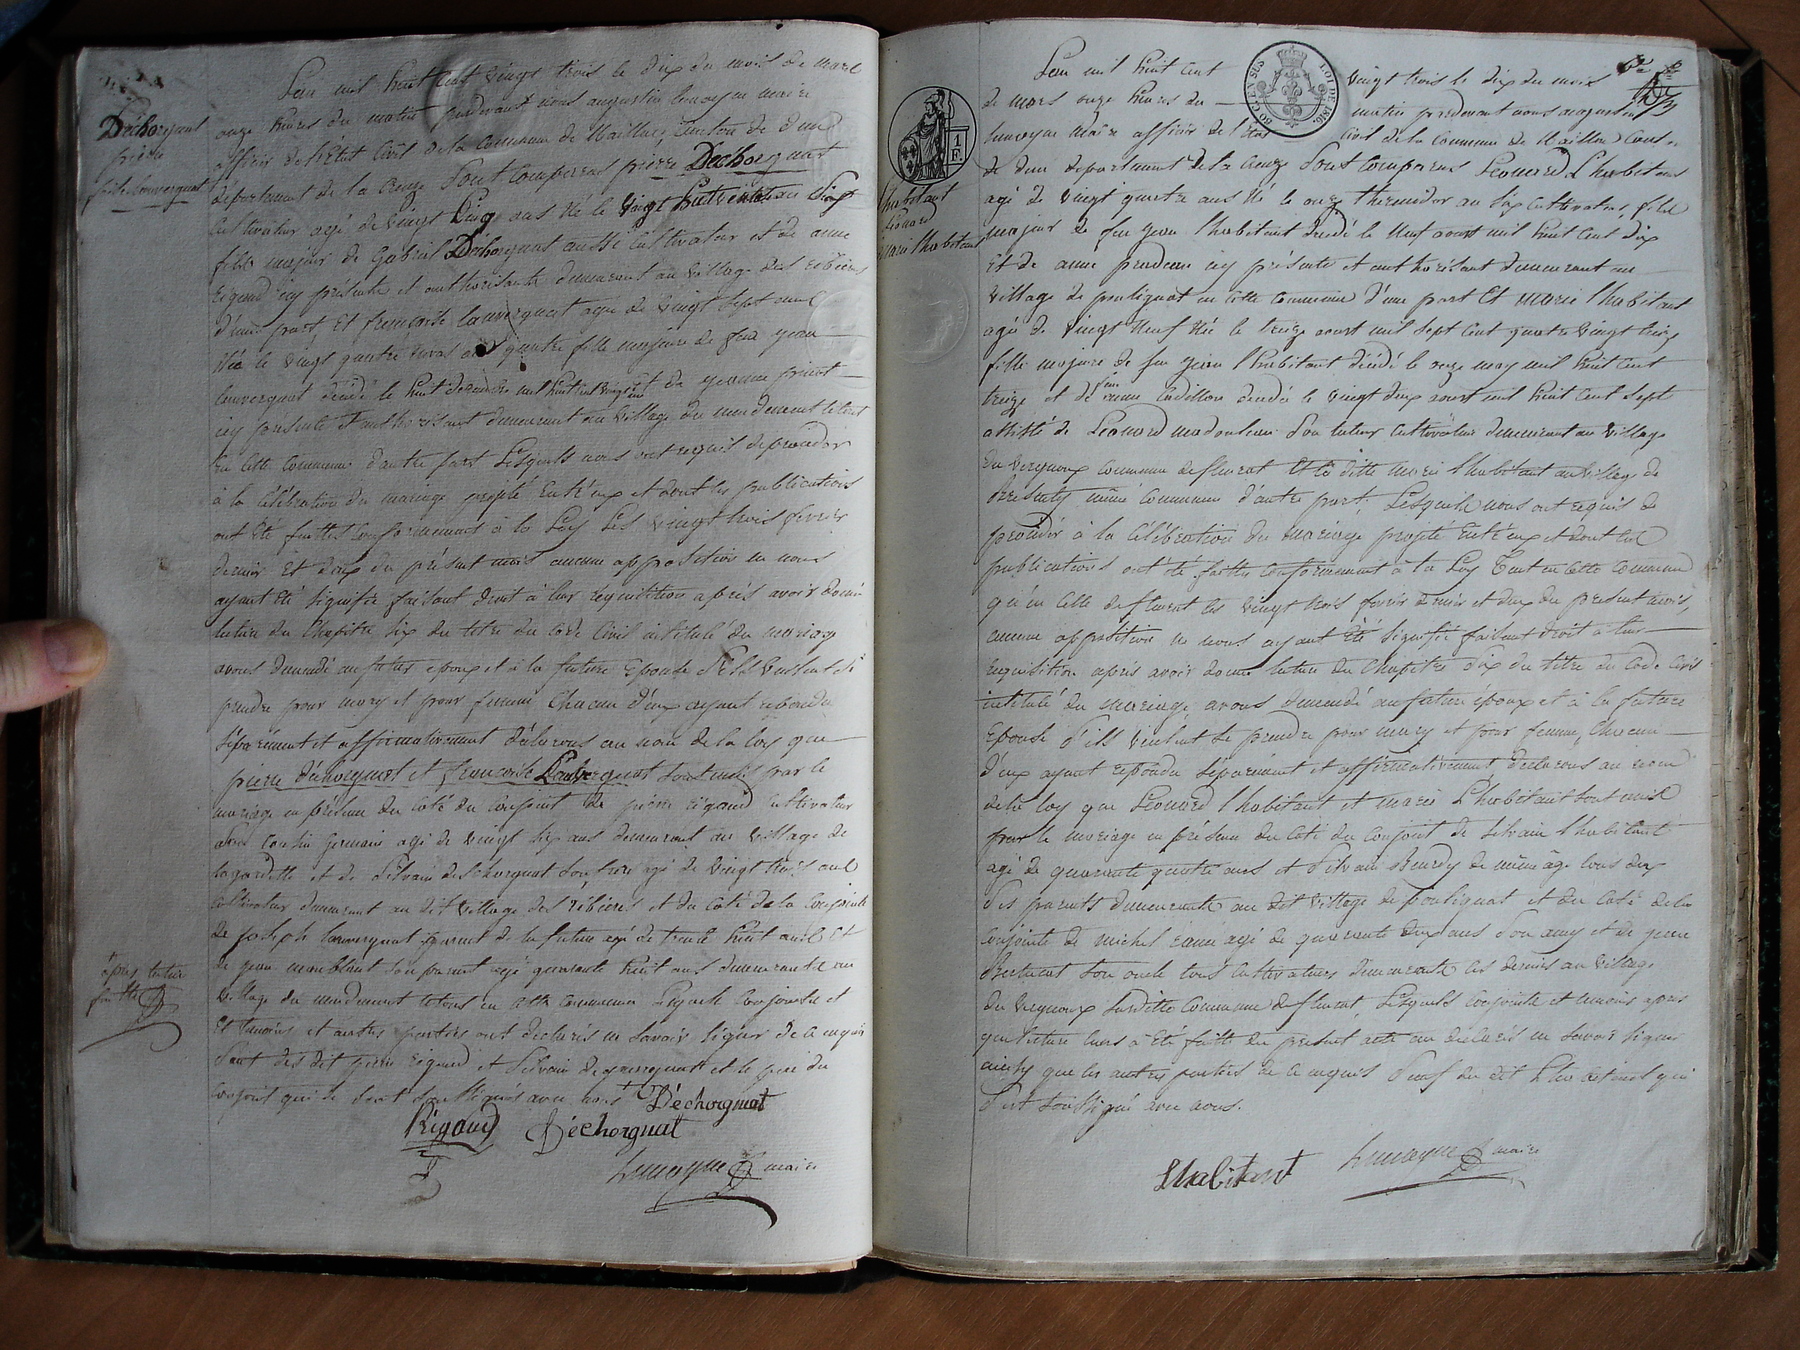 Dechorgnat
pierre
L'an mil huit cent vingt trois le dix du mois de mars
onze heures du matin pardevant nous augustin Lemoyne maire
officier de l'état Civil de la Commune de Naillac, Canton de dun
département de la Creuse Sont Comparus pierre Dechorgnat
Cultivateur agé de vingt Cinq ans Né le vingt huit
fils majeur de Gabriel Dechorgnat aussi Cultivateur et de anne
rigaud icy présents et authorisants demeurant au village des ribières
d'une part, Et francoise Lauvergnat agée de vingt sept ans
Née le vingt quatre quatre fille majeure de feu jean
Lauvergnat décédé le huit décembre mil huit cent et de jeanne
icy présente et authorisant demeurant au village du
en cette Commune d'autre part Lesquels nous ont requis de procéder
à la Célébration du mariage projeté Entr'eux et dont les publications
ont été faittes Conformément à la Loy Les vingt trois février
dernier Et deux du présent mois aucune opposition ne nous
ayant été signifiée faisant droit à leur requisition après avoir donné
lecture du Chapitre six du titre du Code Civil intitulé du mariage
avons demandé au futur époux et à la future Epouse s'ils veulent se
prendre pour mary et pour femme Chacun d'eux ayant répondu
séparément et affirmativement déclarons au nom de la loy que
pierre déchorgnat et francoise Lauvergnat Sont unis par le
mariage en présence du Coté du Conjoint de pierre rigaud Cultivateur
Cousin Germain agé de vingt six ans demeurant au village de
lagardette et de Silvain deschorgnat Son frere agé de vingt trois ans
Cultivateur demeurant au dit village des ribières et du Coté de la Conjointe
de joseph Lauvergnat parent de la future agé de trente huit ans Et
de jean Son parent agé quarante huit ans demeurants au
village du en cette Commune Lesquels Conjointe et
Et témoins et autres parties ont déclarés ne Savoir Signer de ce enquis
Sauf les dit pierre rigaud et Silvain et le père du
Conjoint qui se Sont Soussignés avec nous
après lecture
faitte
Déchorgnat
Rigaud Déchorgnat
Lemoyne maire
L'habitant
Léonard
Marie l'habitant
1 F.
LOI DE 1816
L'an mil huit cent vingt trois le dix du mois
de mars onze heures du matin pardevant nous augustin
Lemoyne Maire officier de l'état Civil de la Commune de Naillac Canton
de dun departement de la Creuse Sont Comparus Léonard L'habitant
agé de vingt quatre ans Né le onze thermidor an Six Cultivateur, fils
majeur de feu jean l'habitant décédé le Neuf aoust mil huit Cent dix
Et de anne icy présente et authorisant demeurant au
village de poulignat en cette Commune d'une part Et marie l'habitant
agée de vingt Neuf Née le treize aoust mil Sept Cent quatre vingt treize
fille majeure de feu jean l'habitant décédé le onze may mil huit Cent
treize et de décédée le vingt deux aoust mil huit Cent Sept
assistée de Léonard Son tuteur Cultivateur demeurant au village
du Commune de fleurat Et la ditte marie l'habitant au village de
même Commune d'autre part, Lesquels nous ont requis de
procéder à la Célébration du mariage projeté Entr'eux et dont les
publications ont été faittes Conformément à la Loy Tant en cette Commune
qu'en Celle de fleurat les vingt trois février dernier et deux du présent mois,
aucune opposition ne nous ayant Eté Signifiée faisant droit à leur
requisition après avoir donné lecture du Chapitre Six du titre du Code Civil
intitulé du mariage, avons demandé au futur époux et à la future
Epouse s'ils veulent Se prendre pour mary et pour femme, Chacun
d'eux ayant répondu Séparément et affirmativement déclarons au nom
de la loy que Léonard l'habitant et marie L'habitant Sont unis
par le mariage en présence du Coté du Conjoint de Silvain l'habitant
agé de quarante quatre ans et Silvain de même âge tous deux
Ses parents demeurants au dit village de poulignat et du Coté de la
Conjointe de michel agé de quarante deux ans Son amy et de jean
Son oncle tous Cultivateurs demeurants les derniers au village
du Susditte Commune de fleurat, Lesquels Conjointe et témoins après
que lecture leurs a été faitte du présent acte ont déclarés ne Savoir Signer
ainsy que les autres parties de ce enquis Sauf du dit L'habitant qui
S'est Soussigné avec nous.
L'habitant
Lemoyne maire